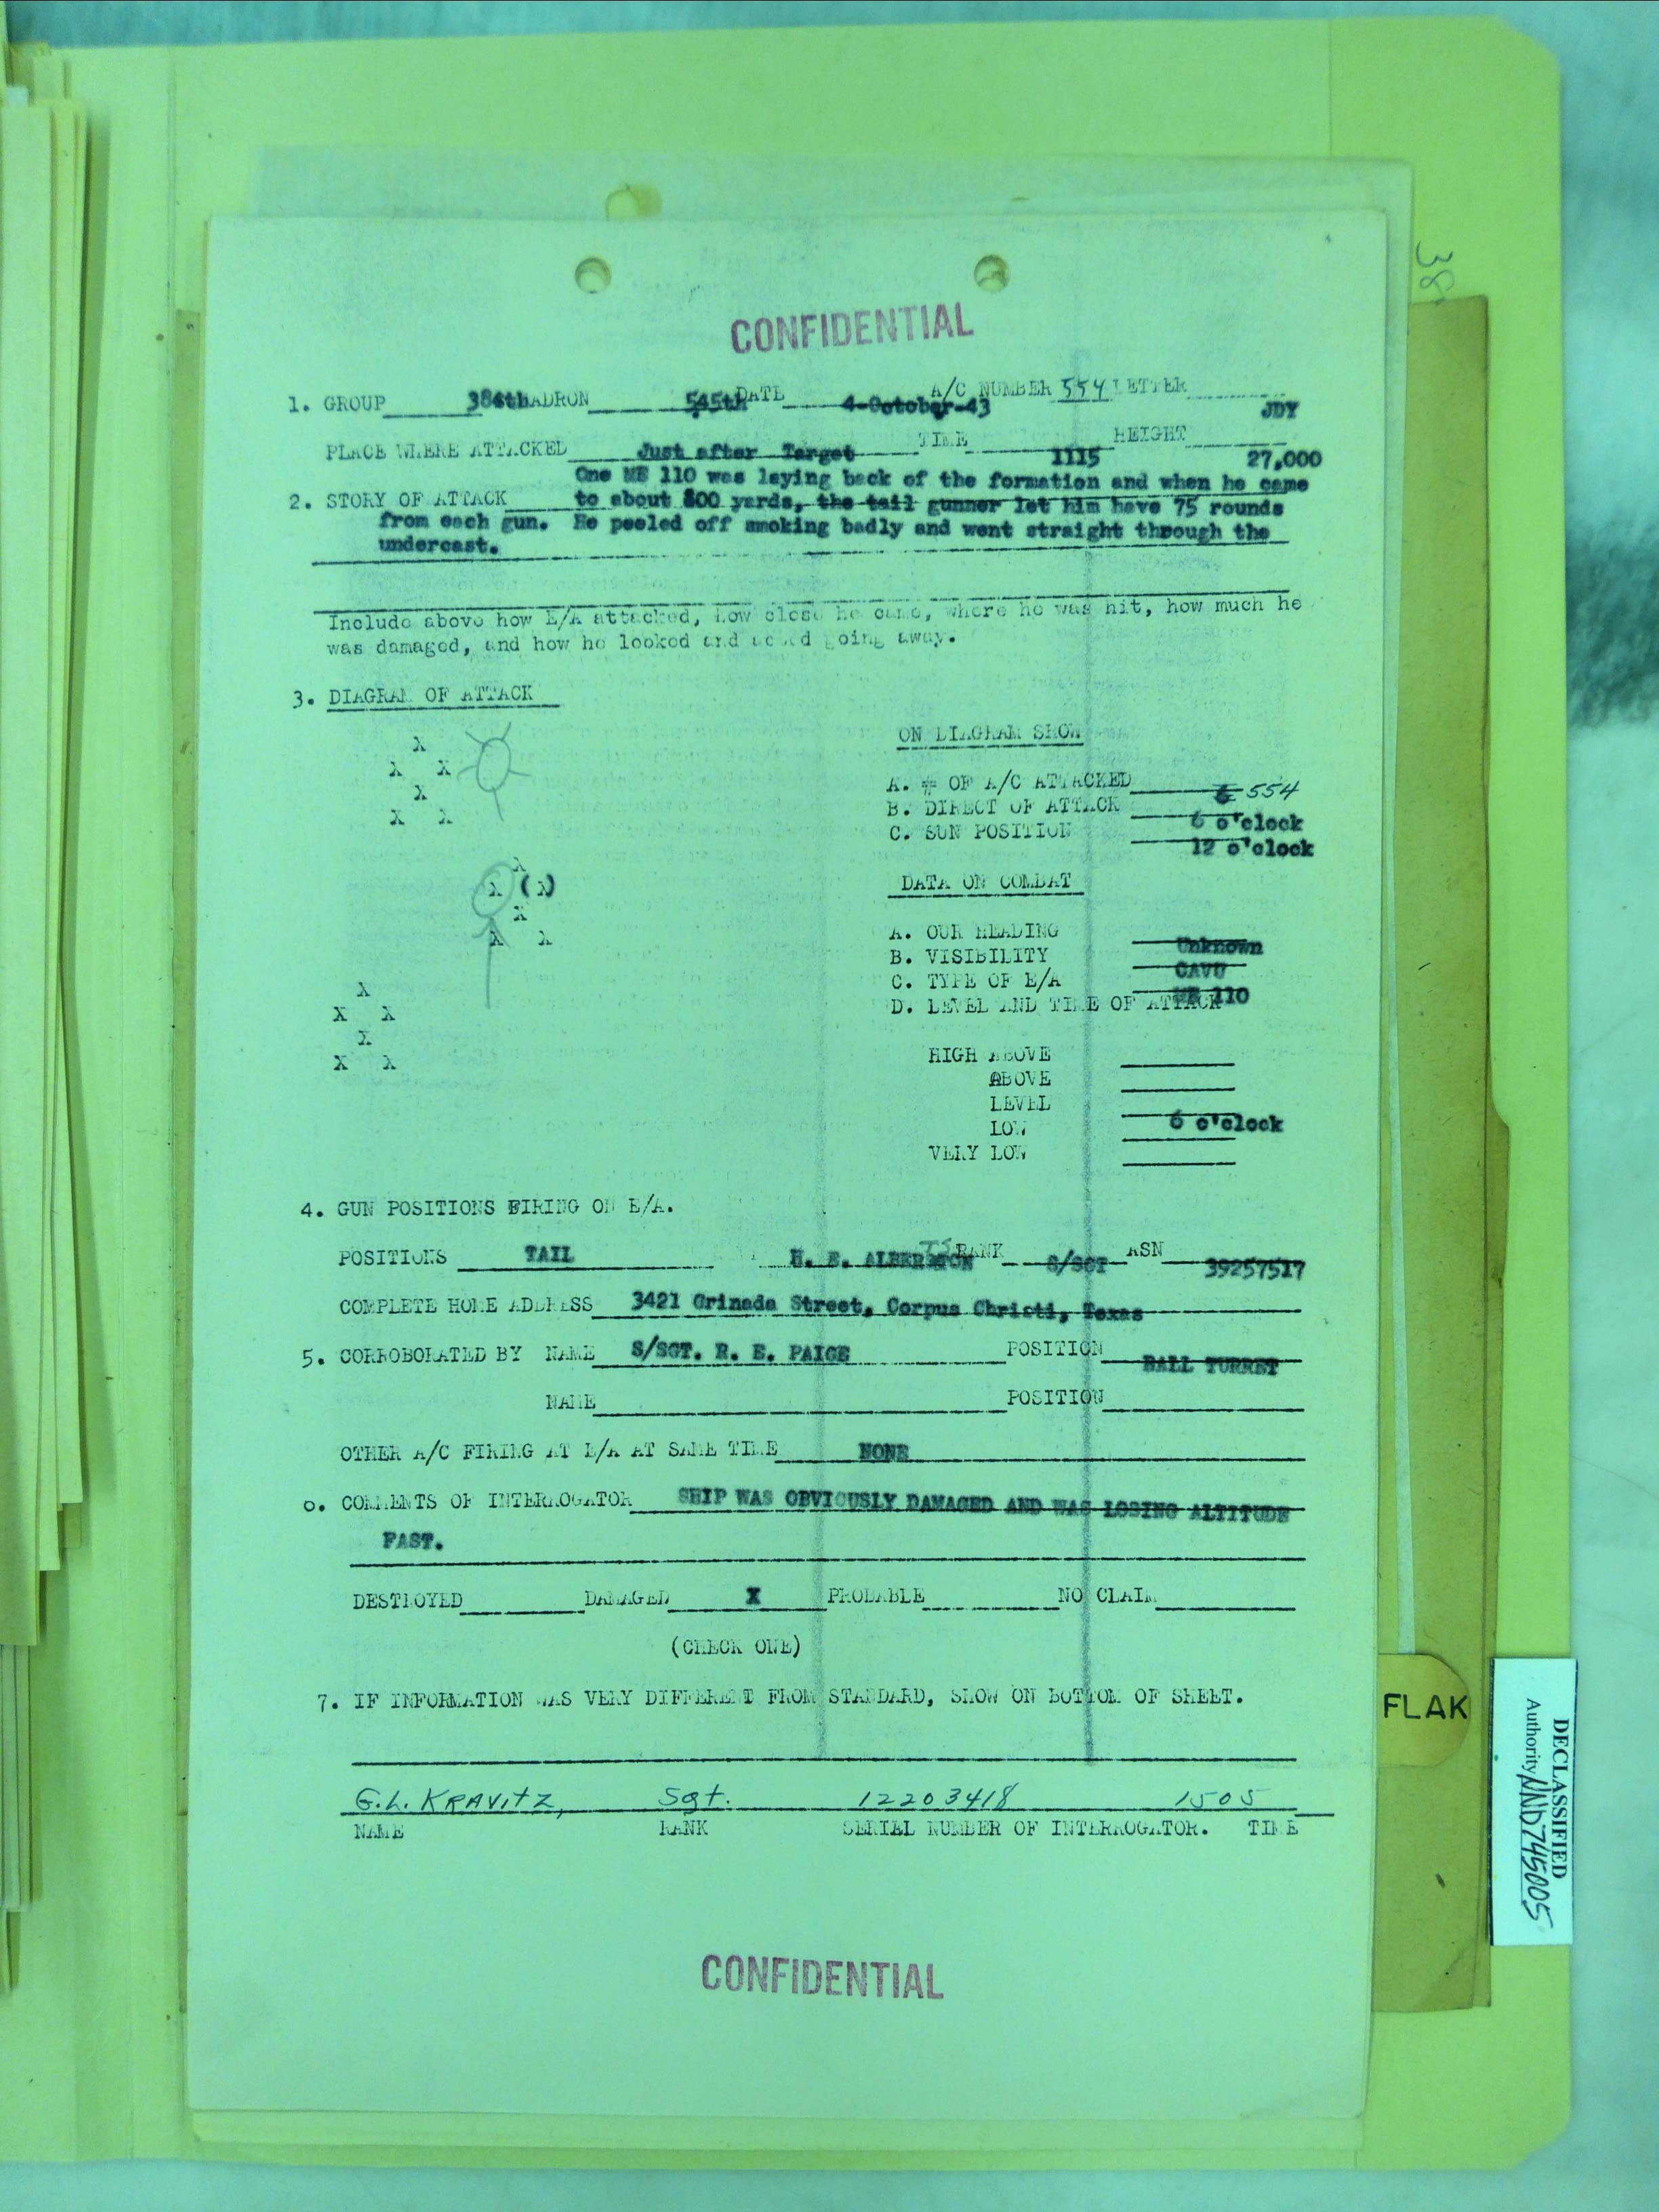 38
CONFIDENTIAL
1. GROUP 384th ADRON 545th DATE 4-October-43 A/C NUMBER 554 LETTER JDY
PLACE WHERE ATTACKED Just after Target TIME 1115 HEIGHT 27,000
One ME 110 was laying back of the formation and when he came
2. STORY OF ATTACK to about 800 yards, the tail gunner let him have 75 rounds
from each gun. He peeled off smoking badly and went straight through the
undercast.
Include above how E/A attacked, how close he came, where he was hit, how much he
was damaged, and how he looked and acted going away.
3. DIAGRAM OF ATTACK
X
X X
X
X X
X
X (X)
X
X X
X
X X
X
X X
ON DIAGRAM SHOW
A. # OF A/C ATTACKED 554
B. DIRECT OF ATTACK 6 o'clock
C. SUN POSITION 12 o'clock
DATA ON COMBAT
A. OUR HEADING Unknown
B. VISIBILITY CAVU
C. TYPE OF E/A ME 110
D. LEVEL AND TIME OF ATTACK
HIGH ABOVE
ABOVE
LEVEL
LOW 6 o'clock
VERY LOW
4. GUN POSITIONS FIRING ON E/A.
POSITIONS TAIL H. E. RANK S/SGT ASN 39257517
COMPLETE HOME ADDRESS 3421 Grinada Street, Corpus Christi, Texas
5. CORROBORATED BY NAME S/SGT. R. E. PAIGE POSITION BALL TURRET
NAME POSITION
OTHER A/C FIRING AT E/A AT SAME TIME NONE
6. COMMENTS OF INTERROGATOR SHIP WAS OBVIOUSLY DAMAGED AND WAS LOSING ALTITUDE
FAST.
DESTROYED DAMAGED X PROBABLE NO CLAIM
(CHECK ONE)
7. IF INFORMATION WAS VERY DIFFERENT FROM STANDARD, SHOW ON BOTTOM OF SHEET.
G.L. KRAVITZ, Sgt. 12203418 1505
NAME RANK SERIAL NUMBER OF INTERROGATOR. TIME
CONFIDENTIAL
FLAK
DECLASSIFIED
Authority NND745005